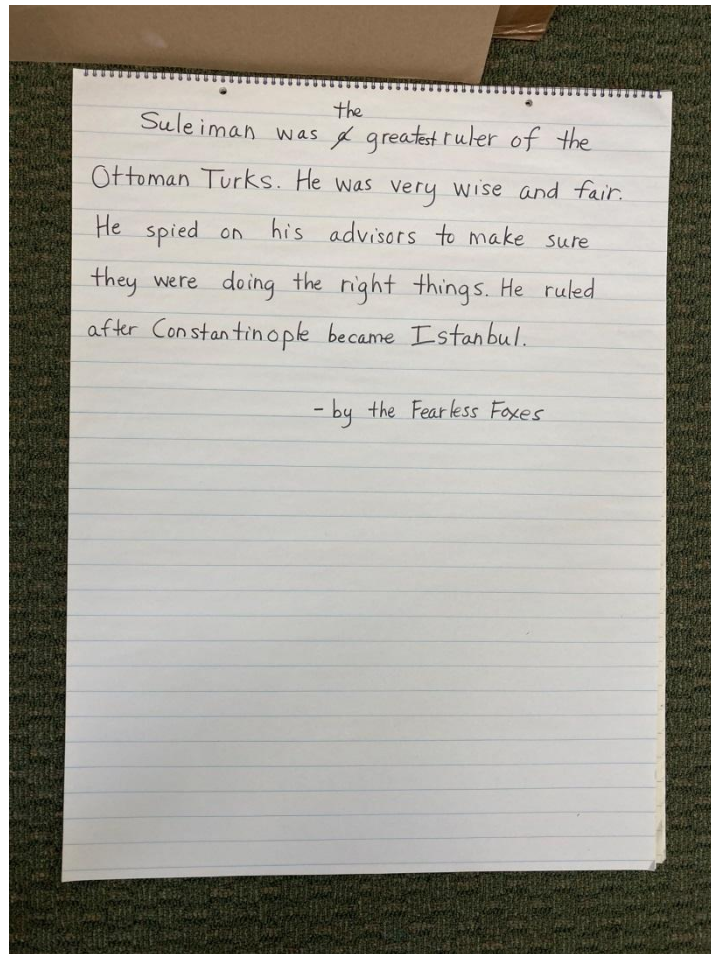 Suleiman was the greatest ruler of the
Ottoman Turks. He was very wise and fair.
He spied on his advisors to make sure
they were doing the right things. He ruled
after Constantinople became Istanbul.
- by the Fearless Foxes